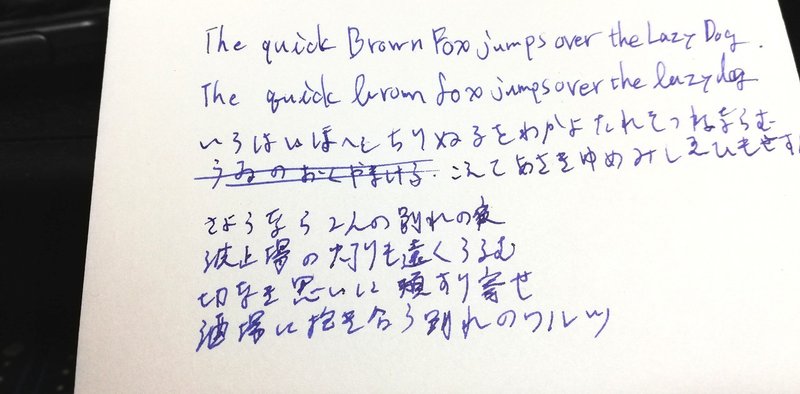 The quick Brown Fox jumps over the Lazy Dog.
The quick brown fox jumps over the lazy dog
いろはにほへとちりぬるをわかよたれそつねならむ
うゐのおくやまけふこえてあさきゆめみしゑひもせす
さようなら2人の別れの夜
波止場の灯りも遠くうるむ
切なき思いに頬すり寄せ
酒場に抱き合う別れのワルツ